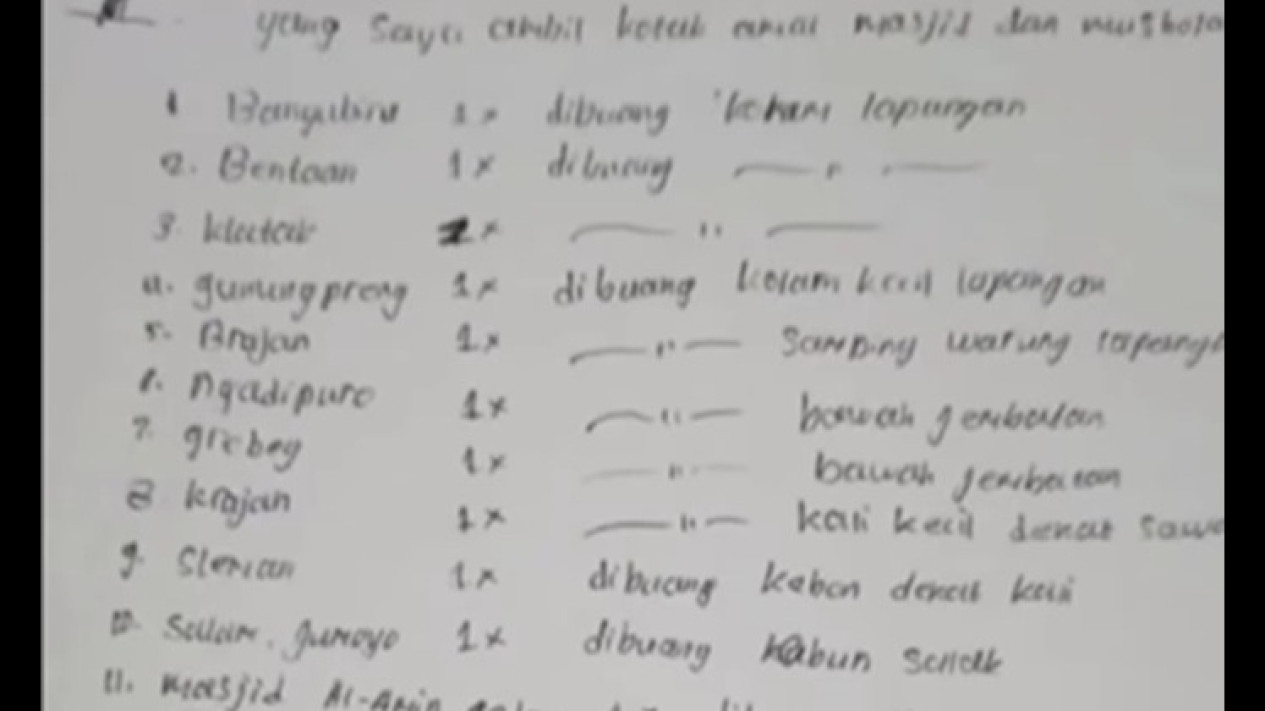 yang saya ambil kotak amal masjid dan mushola
1 Banyubiru 1x dibuang kolam lapangan
2. Bentaan 1x dibuang — " —
3 klatak 2x — " —
4. gunungpreng 1x dibuang kolam kecil lapangan
5. Brajan 1x — " — Samping warung
6. Ngadipuro 1x — " — bawah jembatan
7. grebeg 1x — " — bawah jembatan
8 krajan 1x — " — kali kecil dekat
9. 1x dibuang kebon dekat kali
10. gunoyo 1x dibuang kabun
11. masjid Al-Amin